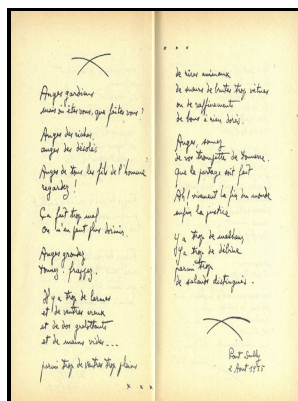 Anges gardiens
mais où êtes vous, que faites vous ?
Anges des riches,
anges des désolés
Anges de tous les fils de l'homme
regardez !
Ça fait trop mal
on n'en peut plus dormir.
Anges grondez
Tonnez ! frappez.
Il y a trop de larmes
et de ventres creux
et de dos grelottants
et de mains vides ---
parmi trop de ventres trop pleins
x x x
x x x
de rires animaux
de sueurs de brutes trop vêtues
ou de raffinements
de bons à rien dorés.
Anges, sonnez
de vos trompettes de tonnerre.
que le partage soit fait
Ah ! vivement la fin du monde
enfin la justice
Y a trop de malheur
Y a trop de délire
parmi trop
de salauds distingués.
Pont Sully
2 Aout 1955